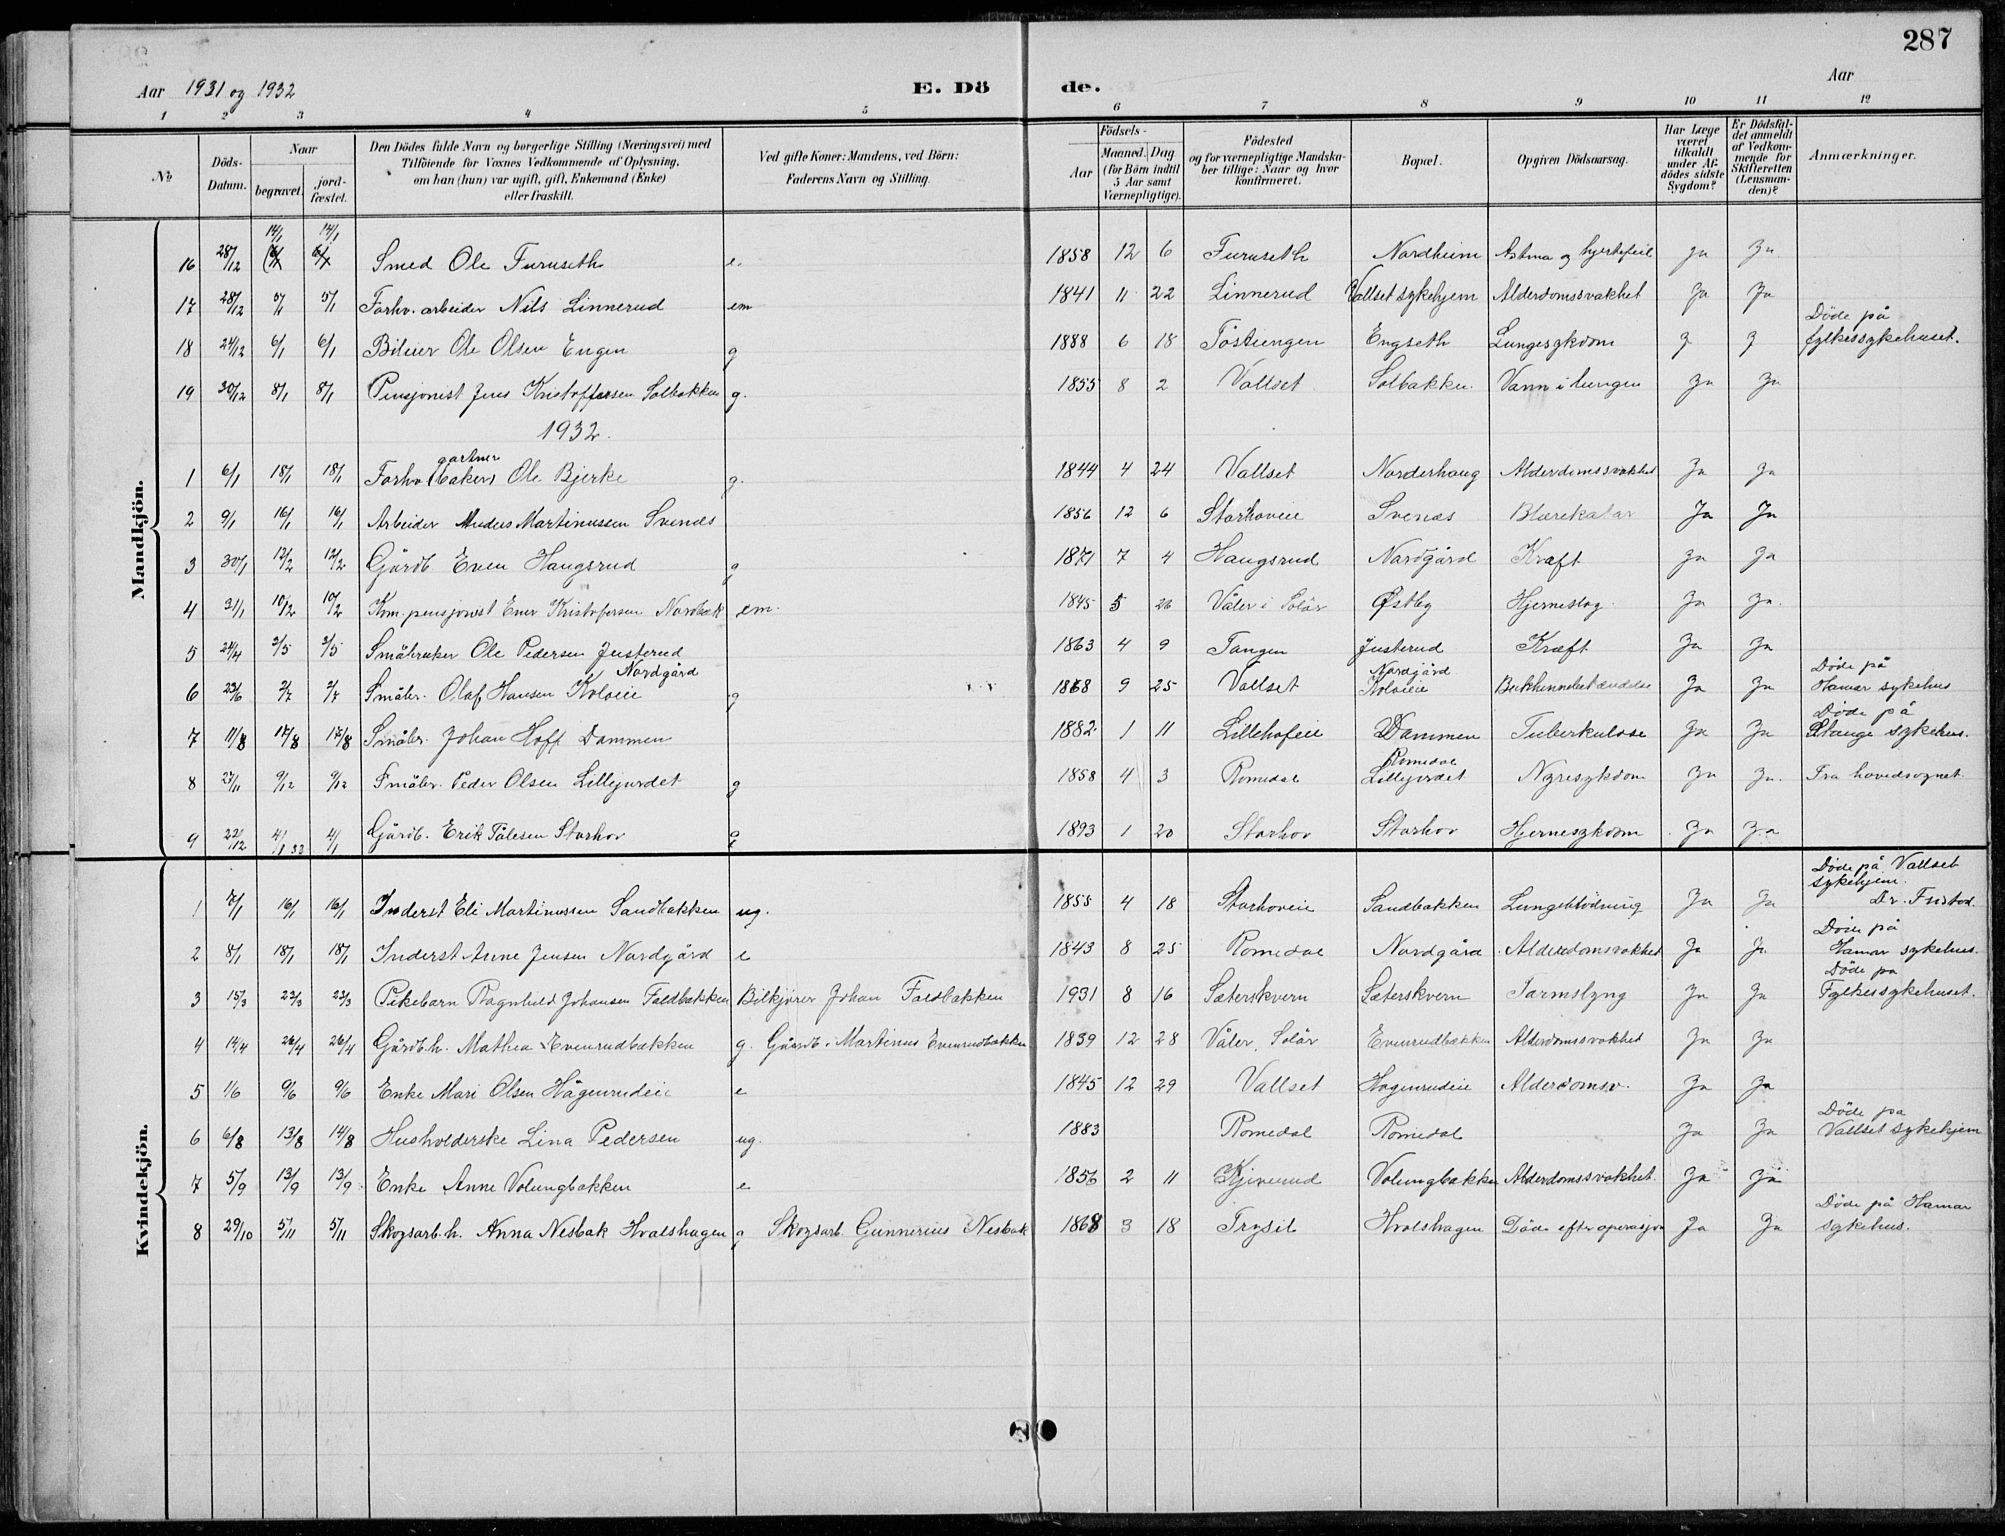 287
Aar 1931 og 1932 E. Dö de. Aar
1 2 3 4 5 6 7 8 9 10 11 12
No Döds-Datum. Naar begravet. jord-fæstet. Den Dödes fulde Navn og borgerlige Stilling (Næringsvei) med Tilföiende for Voxnes Vedkommende af Oplysning, om han (hun) var ugift, gift, Enkemand (Enke) eller fraskilt. Ved gifte Koner: Mandens, ved Börn: Faderens Navn og Stilling. Födsels- Aar Maaned. Dag (for Börn indtil 5 Aar samt Værnepligtige). Födested og for værnepligtige Mandska-ber tillige: Naar og hvor konfirmeret. Bopæl. Opgiven Dödsaarsag. Har Læge været tilkaldt under Af-dödes sidste Sygdom? Er Dödsfal-det anmeldt af Vedkom-mende for Skifteretten (Lensman-den)? Anmærkninger.
Mandkjön.
14/1 14/1
16 28/12 6/1 6/1 Smed Ole Furuseth e. 1858 12 6 Furuseth Nordheim Astma og hjertefeil Ja Ja
17 28/12 5/1 5/1 Forhv. arbeider Nils Linnerud em 1841 11 22 Linnerud Vallset sykehjem Alderdomssvakhet Ja Ja
18 24/12 6/1 6/1 Bileier Ole Olsen Engen g 1888 6 18 Töstiengen Engseth Lungesykdom J J Döde på fylkessykehuset.
19 30/12 8/1 8/1 Pensjonist Jens Kristoffersen Solbakken g. 1855 8 2 Vallset Solbakken. Vann i lungen Ja Ja
1932.
gartner
1 6/1 18/1 18/1 Forhv (baker) Ole Bjerke g. 1844 4 24 Vallset Norderhaug Alderdomssvakhet Ja Ja
2 9/1 16/1 16/1 Arbeider Anders Martinussen Svenæs 1856 12 6 Starhoveie Svenæs Blærekatar Ja Ja
3 30/1 12/2 12/2 Gårdb Even Haugsrud g 1871 7 4 Haugsrud Nordgård Kræft Ja Ja
4 31/1 10/2 10/2 Km. pensjonist Ener Kristofersen Nordbæk em. 1845 5 26 Våler i Solör Østby Hjerneslag. Ja Ja.
5 24/4 3/5 3/5 Småbruker Ole Pedersen Justerud 1863 4 9 Tangen Justerud Kræft Ja Ja
Nordgård Nordgård Döde på
6 23/6 2/7 2/7 Småbr. Olaf Hansen Kolveie g 1868 9 25 Vallset Kolveie Bukhinnebetændelse Ja Ja Hamar sykehus
7 11/8 17/8 17/8 Småbr. Johan Hoff Dammen 1882 1 11 Lillehofeie Dammen Tuberkulose Ja Ja Döde på Stange sykehus.
8 27/11 9/12 9/12 Småbr. Peder Olsen Lillejordet g 1858 4 3 Romedal Romedal Lillejordet Nyresykdom Ja Ja. Fra hovedsognet
9 22/12 4/1 33 4/1 Gårdb. Erik Pålesen Starhov g 1893 1 20 Starhov Starhov Hjernesykdom Ja Ja
Kvindekjön.
1 7/1 16/1 16/1 Inderst Eli Martinussen Sandbakken ug. 1855 4 18 Starhoveie Sandbakken Lungeblödning Ja Ja Döde på Vallset sykehjem. Dr.
2 8/1 18/1 18/1 Inderst Anne Jensen Nordgård e 1843 8 25 Romedal Nordgård Alderdomsvakhet Ja Ja Döde på Hamar sykehus.
3 15/3 23/3 23/3 Pikebarn Ragnhild Johansen Faldbakken Bilkjörer Johan Faldbakken 1931 8 16 Sæterskvern Sæterskvern Tarmslyng Ja Ja Döde på Fylkessykehuset.
4 14/4 26/4 26/4 Gårdb.h. Mathea Evenrudbakken g. Gårdb. Martinus Evenrudbakken 1839 12 28 Våler, Solör Evenrudbakken Alderdomssvakhet Ja Ja
5 1/6 9/6 9/6 Enke Mari Olsen Hågenrudeie e 1845 12 29 Vallset Hagenrudeie Alderdomsv. Ja Ja
6 6/8 13/8 14/8 Husholderske Lina Pedersen ug. 1883 Romedal Romedal Ja Ja Döde på Vallset sykehjem
7 5/9 13/9 13/9 Enke Anne Volungbakken e 1856 2 11 Kjiverud Volungbakken Alderdomssvakhet. Ja Ja
8 29/10 5/11 5/11 Skogsarb.h. Anna Nesbak Hvalshagen g Skogsarb. Gunnerius Nesbak 1868 3 18 Trysil Hvalshagen Döde efter operasjon Ja Ja Döde på Hamar sykehus.